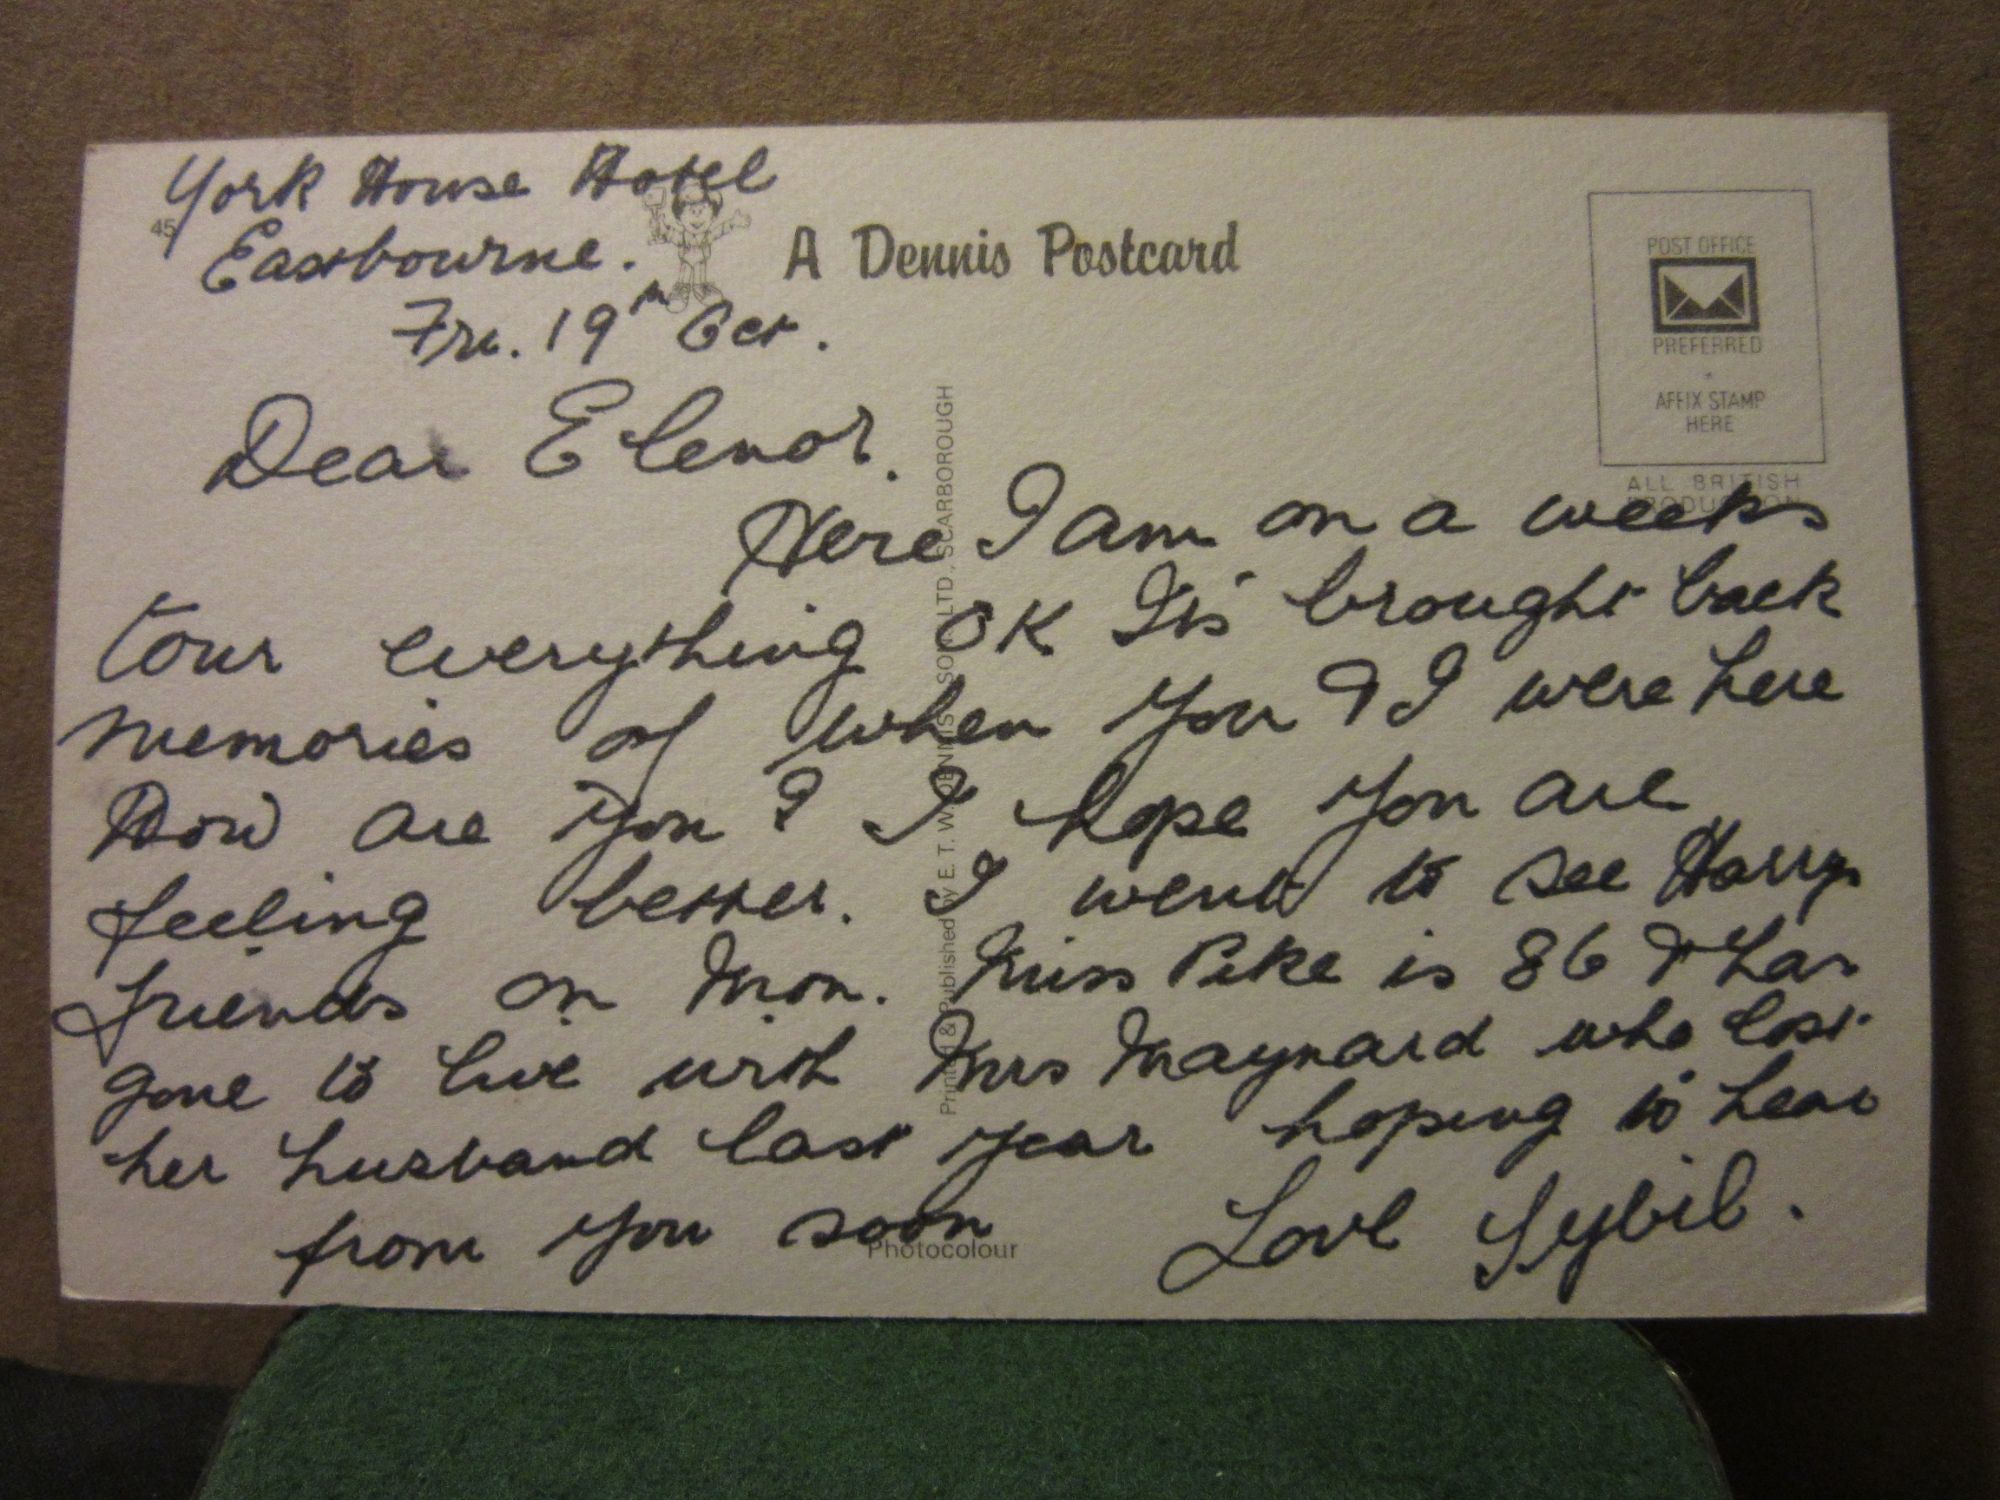 York House Hotel
45
Eastbourne.
Fri. 19th Oct.
A Dennis Postcard
POST OFFICE
PREFERRED
AFFIX STAMP
HERE
ALL BRITISH
PRODUCTION
Dear Elenor.
Here I am on a weeks
tour everything OK Its brought back
memories of when you & I were here
How are you? I hope you are
feeling better. I went to see Harrys
friends on Mon. Miss Pike is 86 & has
gone to live with Mrs Maynard who lost
her husband last year hoping to hear
from you soon Love Sybil.
Printed & Published by E. T. W. DENNIS & SONS LTD., SCARBOROUGH
Photocolour